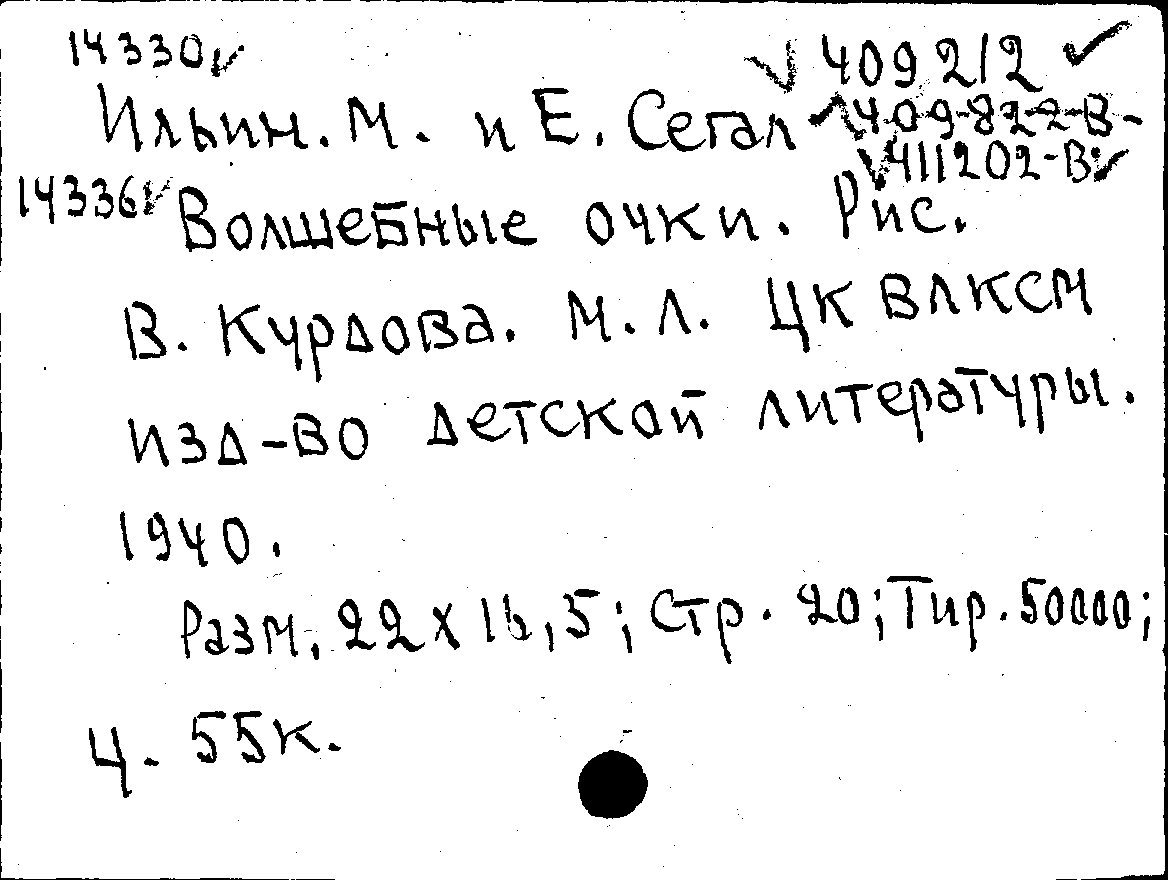 14330✓ ✓ 409212 ✓
Ильин. М. и Е. Сегал 409822-В-
✓411202-В✓
14336✓ Волшебные очки. Рис.
В. Курдова. М. Л. ЦК ВЛКСМ
изд-во детской литературы.
1940.
Разм. 22 х 16,5; Стр. 20; Тир. 50000;
Ц. 55к.